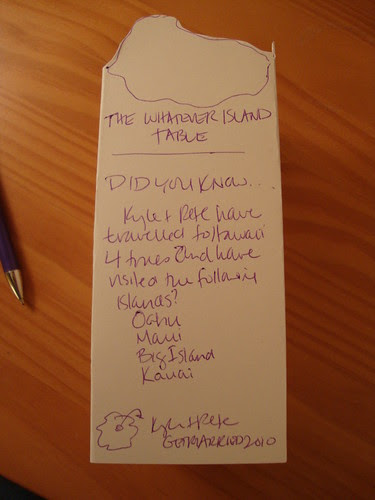 THE WHATEVER ISLAND
TABLE
DID YOU KNOW...
Kyle + Pete have
travelled to Hawaii
4 times and have
visited the following
islands?
Oahu
Maui
Big Island
Kauai
Kyle + Pete
GETMARRIED2010